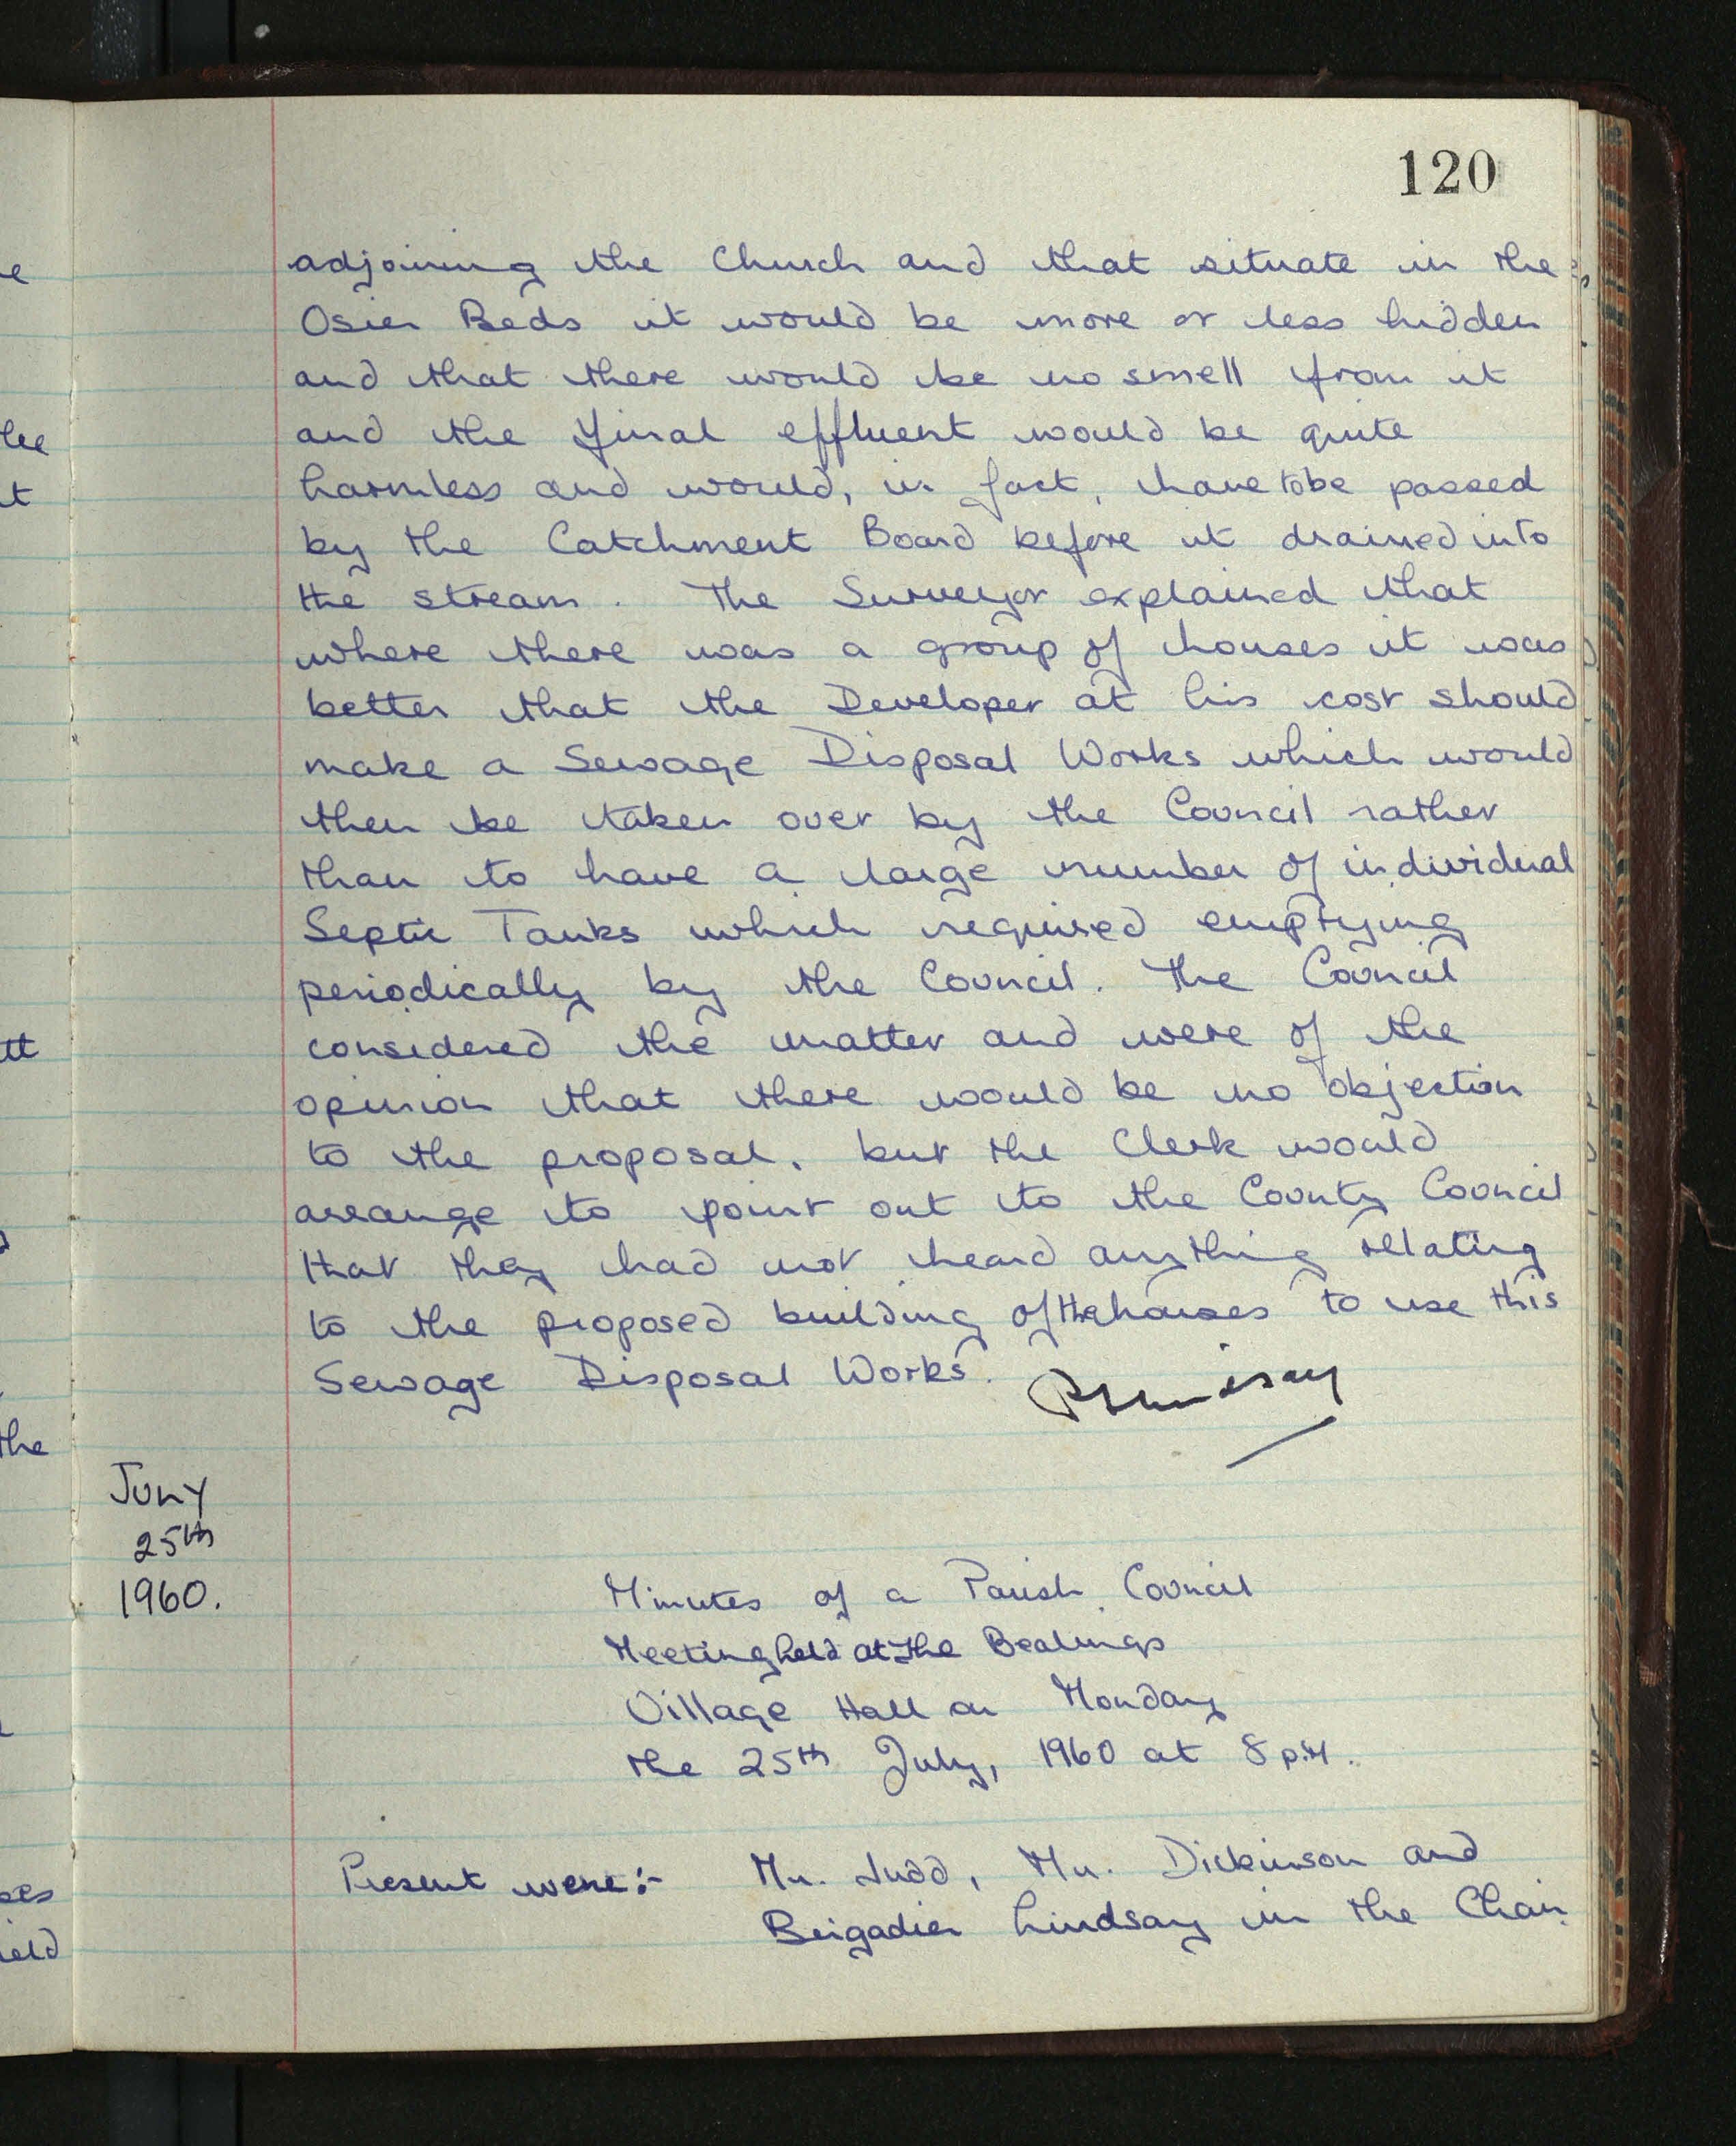 120
adjoining the Church and that situate in the
Osier Beds it would be more or less hidden
and that there would be no smell from it
and the final effluent would be quite
harmless and would, in fact, have to be passed
by the Catchment Board before it drained into
the stream. The Surveyor explained that
where there was a group of houses it was
better that the Developer at his cost should
make a Sewage Disposal Works which would
then be taken over by the Council rather
than to have a large number of individual
Septic Tanks which required emptying
periodically by the Council. The Council
considered the matter and were of the
opinion that there would be no objection
to the proposal, but the Clerk would
arrange to point out to the County Council
that they had not heard anything relating
to the proposed building of the houses to use this
Sewage Disposal Works.
July
25th
1960.
Minutes of a Parish Council
Meeting held at the Bealings
Village Hall on Monday
the 25th July, 1960 at 8 p.m.
Present were:- Mr. Judd, Mr. Dickinson and
Brigadier Lindsay in the Chair